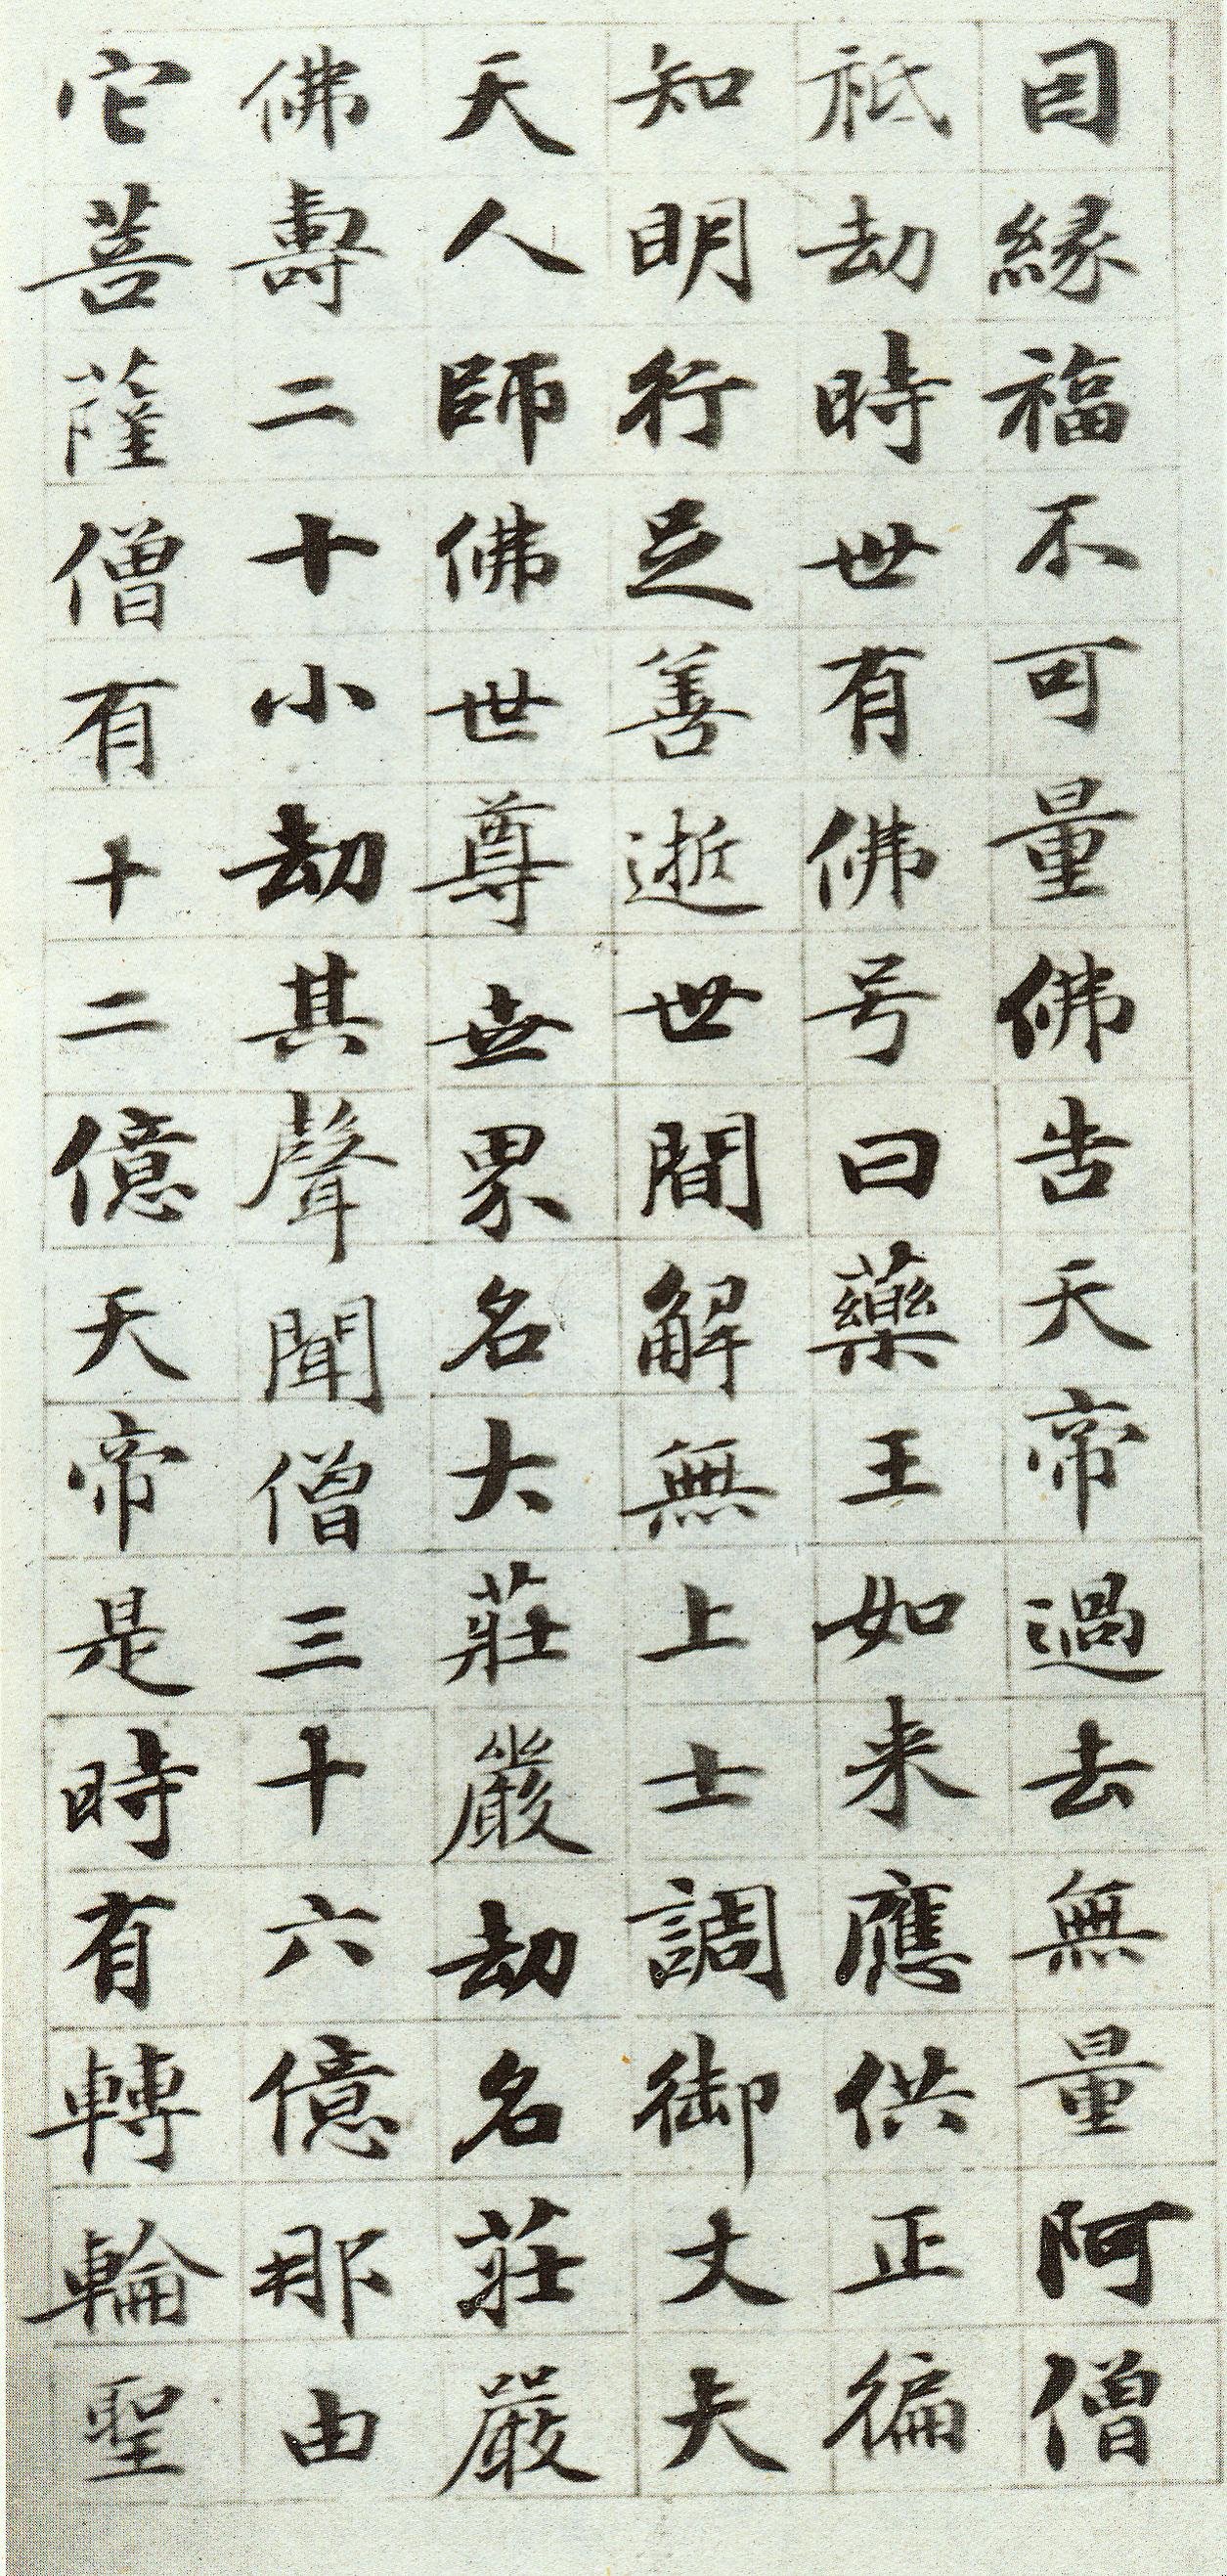 因縁福不可量佛告天帝過去無量阿僧
祇劫時世有佛号曰藥王如来應供正徧
知明行足善逝世間解無上士調御丈夫
天人師佛世尊世界名大莊嚴劫名莊嚴
佛壽二十小劫其聲聞僧三十六億那由
它菩薩僧有十二億天帝是時有轉輪聖